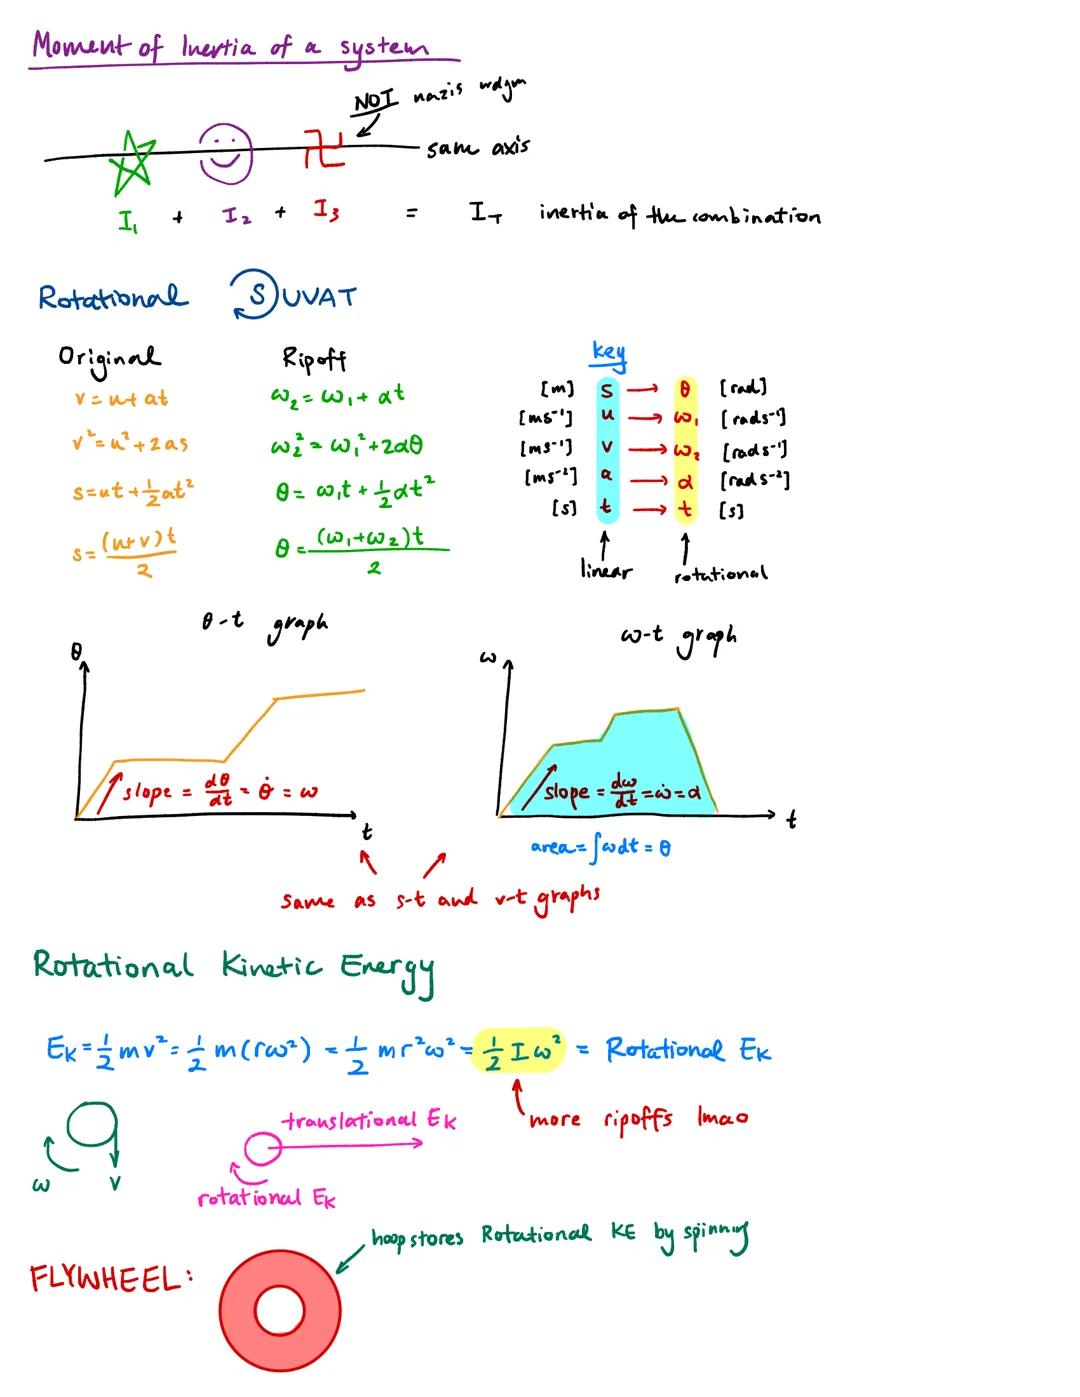 Moment of Inertia of a system
NOT nazis wdym
same axis
I₁ + I₂ + I₃ = I_T inertia of the combination
Rotational SUVAT
Original
v = u + at
v² = u² + 2as
s = ut + ½at²
s = (u+v)t / 2
Ripoff
ω₂ = ω₁ + αt
ω₂² = ω₁² + 2αθ
θ = ω₁t + ½αt²
θ = (ω₁+ω₂)t / 2
key
[m] s → θ [rad]
[ms⁻¹] u → ω₁ [rads⁻¹]
[ms⁻¹] v → ω₂ [rads⁻¹]
[ms⁻²] a → α [rads⁻²]
[s] t → t [s]
linear rotational
θ-t graph
θ
slope = dθ/dt = θ̇ = ω
t
ω-t graph
ω
slope = dω/dt = ω̇ = α
t
area = ∫ωdt = θ
same as s-t and v-t graphs
Rotational Kinetic Energy
E_K = ½mv² = ½m(rω²) = ½mr²ω² = ½Iω² = Rotational E_K
more ripoffs lmao
ω v
translational E_K
rotational E_K
hoop stores Rotational KE by spinning
FLYWHEEL: